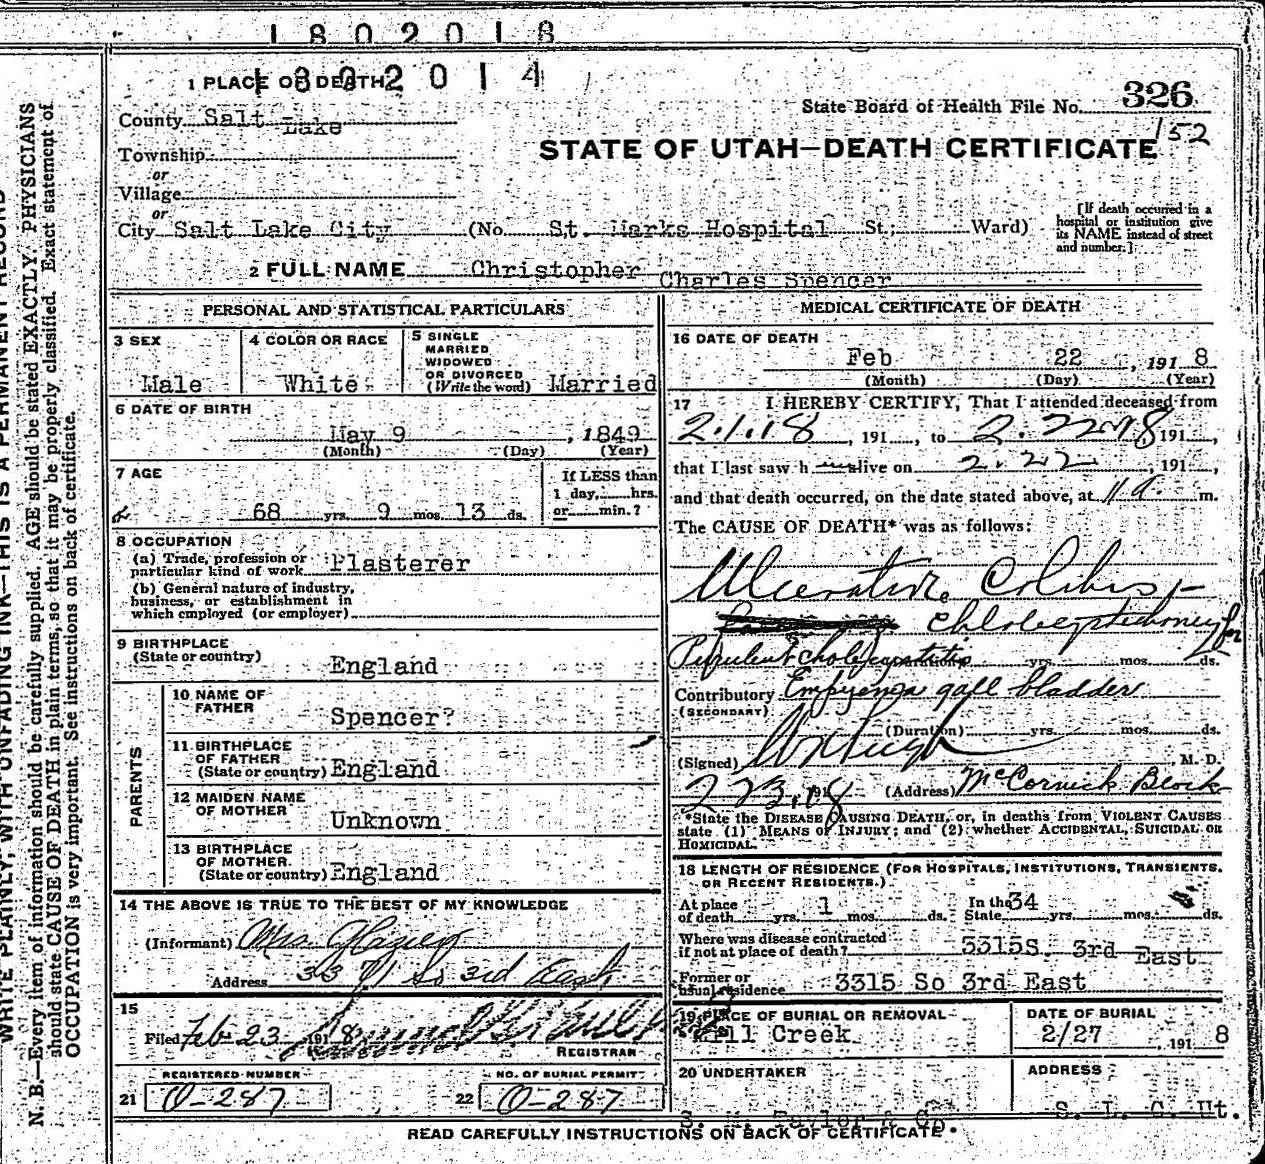 1802018
1 PLACE OF DEATH
1802014
State Board of Health File No. 326
152
County Salt Lake
STATE OF UTAH—DEATH CERTIFICATE
Township
or
Village
or
City Salt Lake City (No. St. Marks Hospital St.; Ward)
[If death occurred in a
hospital or institution give
its NAME instead of street
and number.]
2 FULL NAME Christopher Charles Spencer
PERSONAL AND STATISTICAL PARTICULARS
3 SEX
Male
4 COLOR OR RACE
White
5 SINGLE
MARRIED
WIDOWED
OR DIVORCED
(Write the word) Married
6 DATE OF BIRTH
May 9, 1849
(Month) (Day) (Year)
7 AGE
68 yrs. 9 mos. 13 ds.
If LESS than
1 day, hrs.
or min.?
8 OCCUPATION
(a) Trade, profession or
particular kind of work Plasterer
(b) General nature of industry,
business, or establishment in
which employed (or employer)
9 BIRTHPLACE
(State or country) England
PARENTS
10 NAME OF
FATHER Spencer?
11 BIRTHPLACE
OF FATHER
(State or country) England
12 MAIDEN NAME
OF MOTHER Unknown
13 BIRTHPLACE
OF MOTHER
(State or country) England
14 THE ABOVE IS TRUE TO THE BEST OF MY KNOWLEDGE
(Informant) Mrs Glazier
Address 3371 So 3rd East
15
Filed Feb 23 1918
REGISTRAR
REGISTERED NUMBER
21 O-287
NO. OF BURIAL PERMIT
22 O-287
MEDICAL CERTIFICATE OF DEATH
16 DATE OF DEATH
Feb 22, 1918
(Month) (Day) (Year)
17 I HEREBY CERTIFY, That I attended deceased from
2.1.18, 191, to 2.22.18 191,
that I last saw h alive on 2.22, 191,
and that death occurred, on the date stated above, at 11 a. m.
The CAUSE OF DEATH* was as follows:
Ulcerative Colitis
for
Purulent yrs. mos. ds.
Contributory Empyema gall bladder
(SECONDARY)
(Duration) yrs. mos. ds.
(Signed) M. D.
2 23. 1918 (Address) McCornick Block
*State the DISEASE CAUSING DEATH, or, in deaths from VIOLENT CAUSES
state (1) MEANS OF INJURY; and (2) whether ACCIDENTAL, SUICIDAL OR
HOMICIDAL.
18 LENGTH OF RESIDENCE (FOR HOSPITALS, INSTITUTIONS, TRANSIENTS,
OR RECENT RESIDENTS.)
At place
of death yrs. 1 mos. ds. In the
State 34 yrs. mos. ds.
Where was disease contracted
if not at place of death? 3315 S. 3rd East
Former or
usual residence 3315 So 3rd East
19 PLACE OF BURIAL OR REMOVAL
Mill Creek
DATE OF BURIAL
2/27, 1918
20 UNDERTAKER
Taylor & Co
ADDRESS
S. L. C. Ut.
READ CAREFULLY INSTRUCTIONS ON BACK OF CERTIFICATE.
WRITE PLAINLY, WITH UNFADING INK—THIS IS A PERMANENT RECORD
N. B.—Every item of information should be carefully supplied. AGE should be stated EXACTLY. PHYSICIANS
should state CAUSE OF DEATH in plain terms, so that it may be properly classified. Exact statement of
OCCUPATION is very important. See instructions on back of certificate.